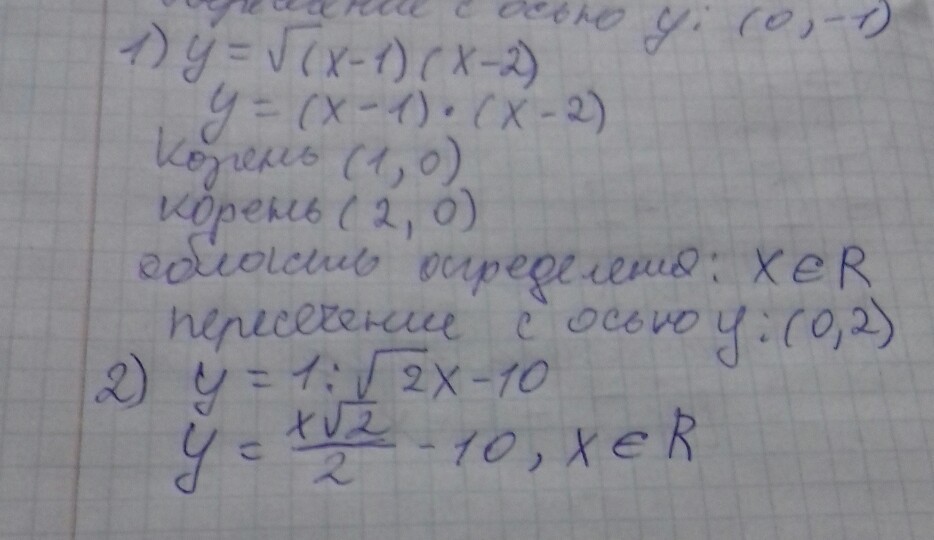 с осью y: (0,-1)
1) y = √(x-1)(x-2)
y = (x-1)·(x-2)
Корень (1,0)
корень (2,0)
область определения: x∈R
пересечение с осью y: (0,2)
2) y = 1:√2x-10
y = x√2/2 - 10, x∈R